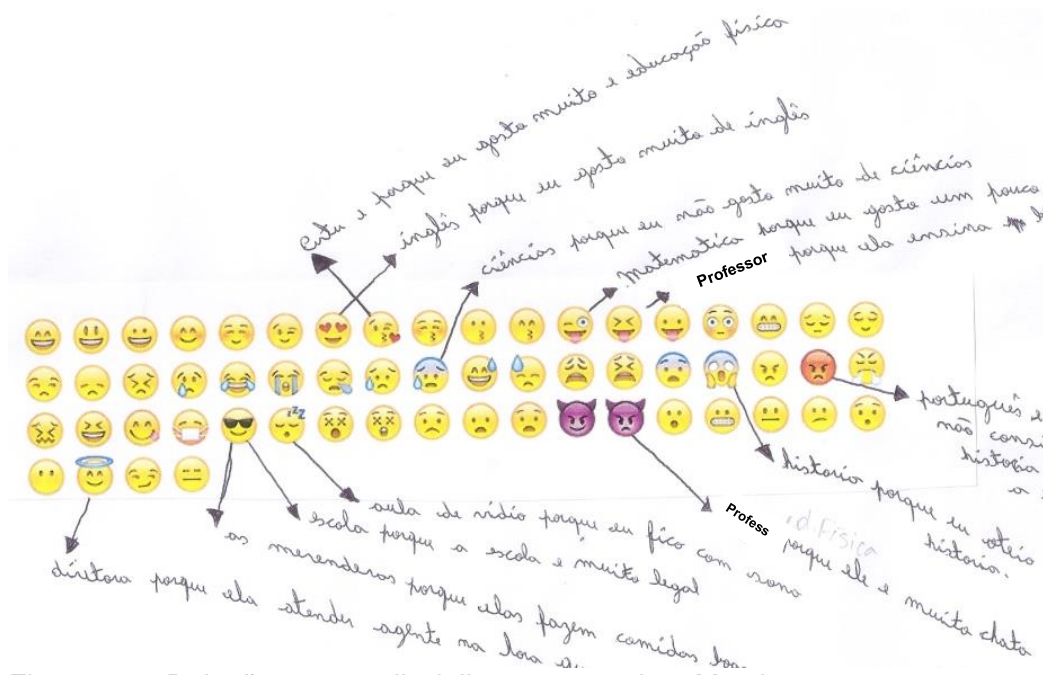 Artu e porque eu gosto muito e educação física
inglês porque eu gosto muito de inglês
ciências porque eu não gosto muito de ciências
matematica porque eu gosto um pouco
Professor porque ela ensina
português e
não consi
historia
a
historia porque eu oteio
historia.
Profess .d. Física
porque ele e muito chata
aula de vidio porque eu fico com sono
escola porque a escola e muito legal
as merenderas porque elas fazem comidas boas
diretora porque ela atender agente na hora qu